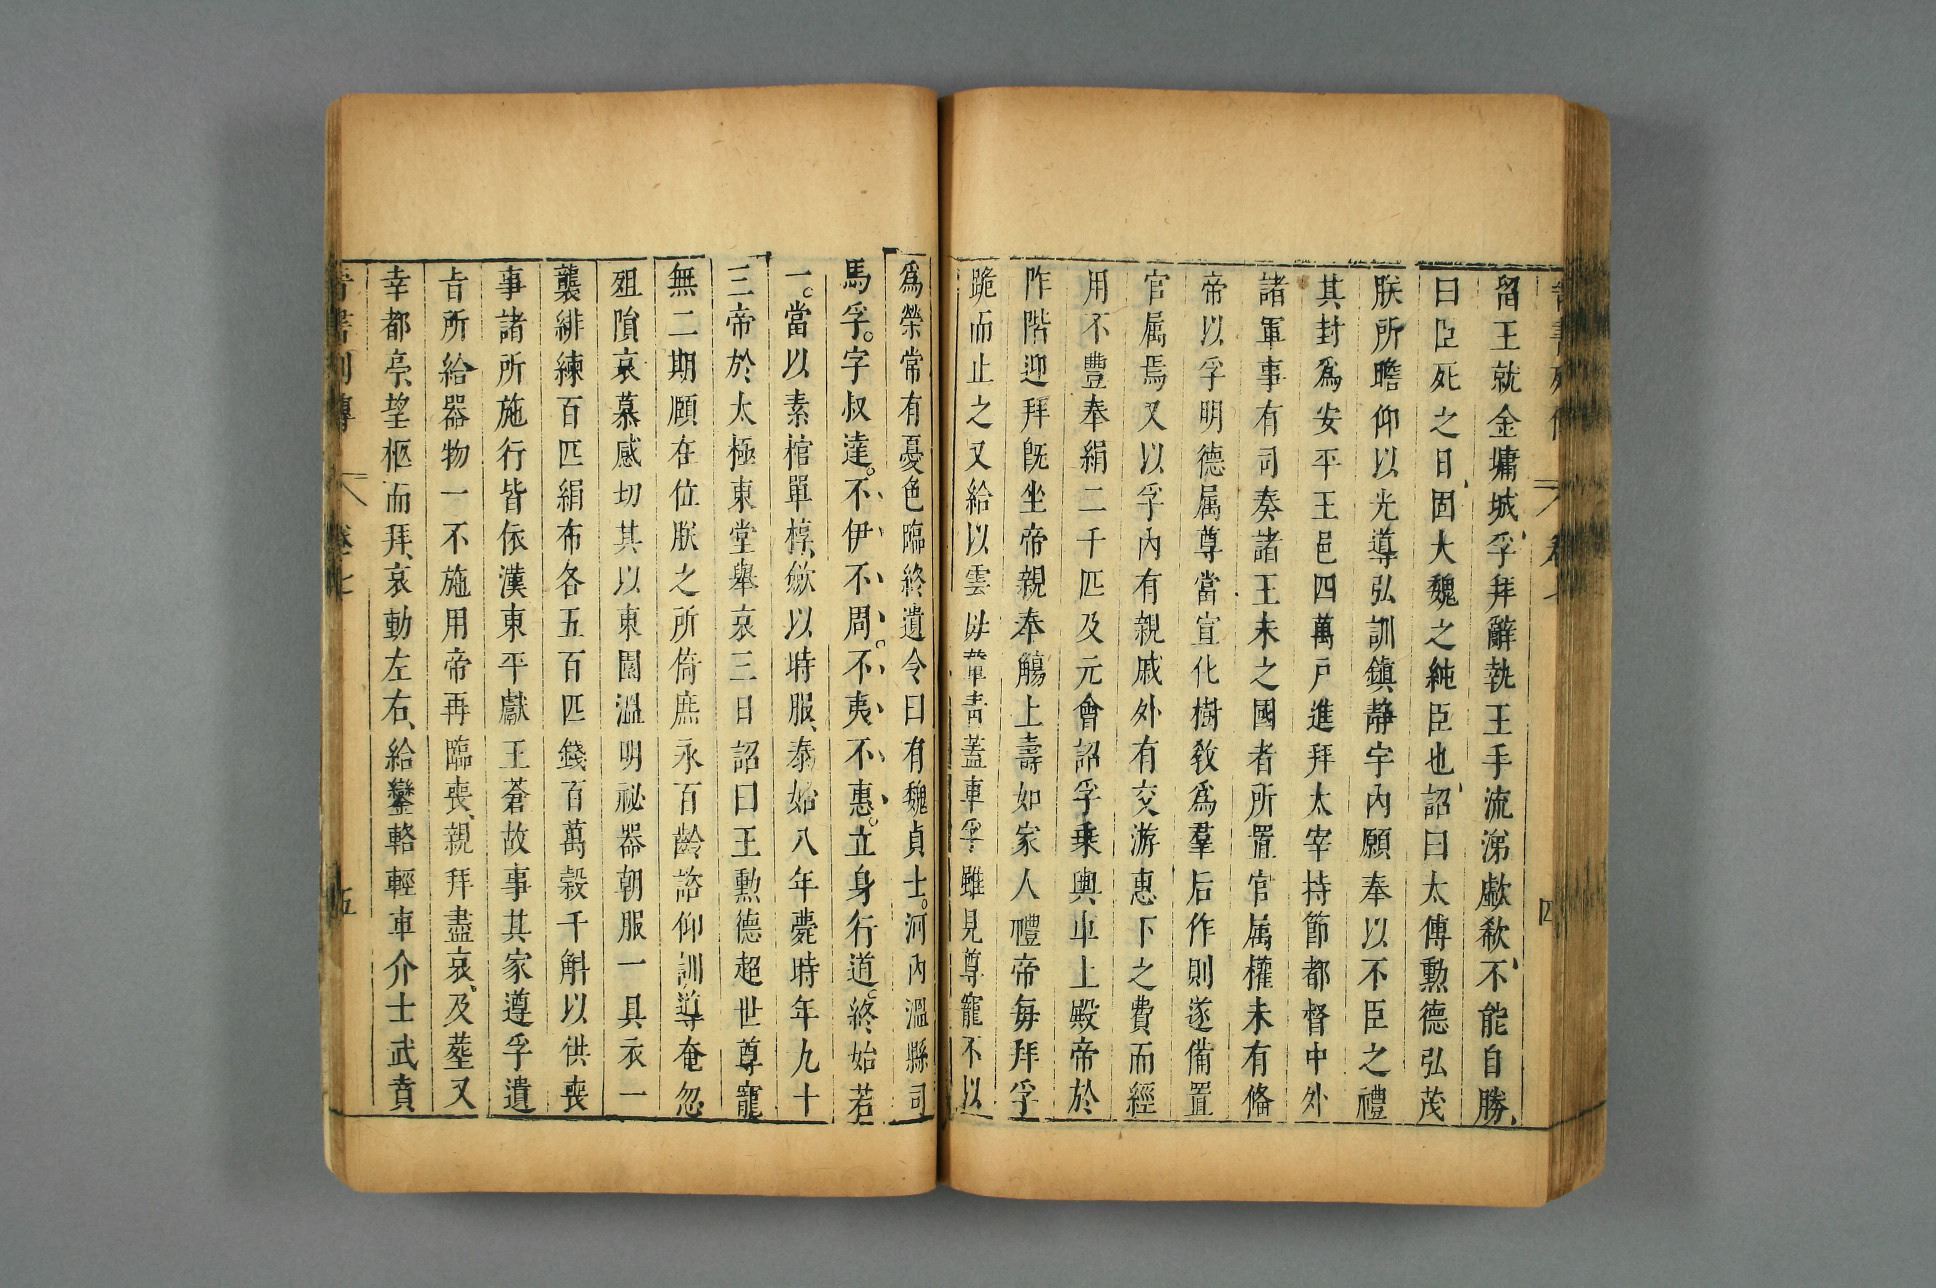 留王就金墉城孚拜辭執王手流涕歔欷不能自勝
曰臣死之日固大魏之純臣也詔曰太傅勳德弘茂
朕所瞻仰以光導弘訓鎮靜宇內願奉以不臣之禮
其封爲安平王邑四萬戸進拜太宰持節都督中外
諸軍事有司奏諸王未之國者所置官属權未有俻
帝以孚明德属尊當宣化樹教爲羣后作則遂備置
官属焉又以孚內有親戚外有交游惠下之費而經
用不豐奉絹二千匹及元會詔孚乗輿車上殿帝於
阼階迎拜旣坐帝親奉觴上壽如家人禮帝每拜孚
跪而止之又給以雲母輦青蓋車孚雖見尊寵不以
爲榮常有憂色臨終遺令曰有魏貞士。河內溫縣司
馬孚。字叔達。不伊不周。不夷不惠。立身行道。終始若
一。當以素棺單椁、斂以時服、泰始八年薨時年九十
三帝於太極東堂舉哀三日詔曰王勳德超世尊寵
無二期願在位朕之所倚庶永百齡諮仰訓導奄忽
殂隕哀慕感切其以東園溫明祕器朝服一具衣一
襲緋練百匹絹布各五百匹錢百萬穀千斛以供喪
事諸所施行皆依漢東平獻王蒼故事其家遵孚遺
㫖所給器物一不施用帝再臨喪、親拜盡哀、及塟又
幸都亭、望柩而拜、哀動左右、給鑾輅輕車介士武賁
晉書列傳 卷七 五